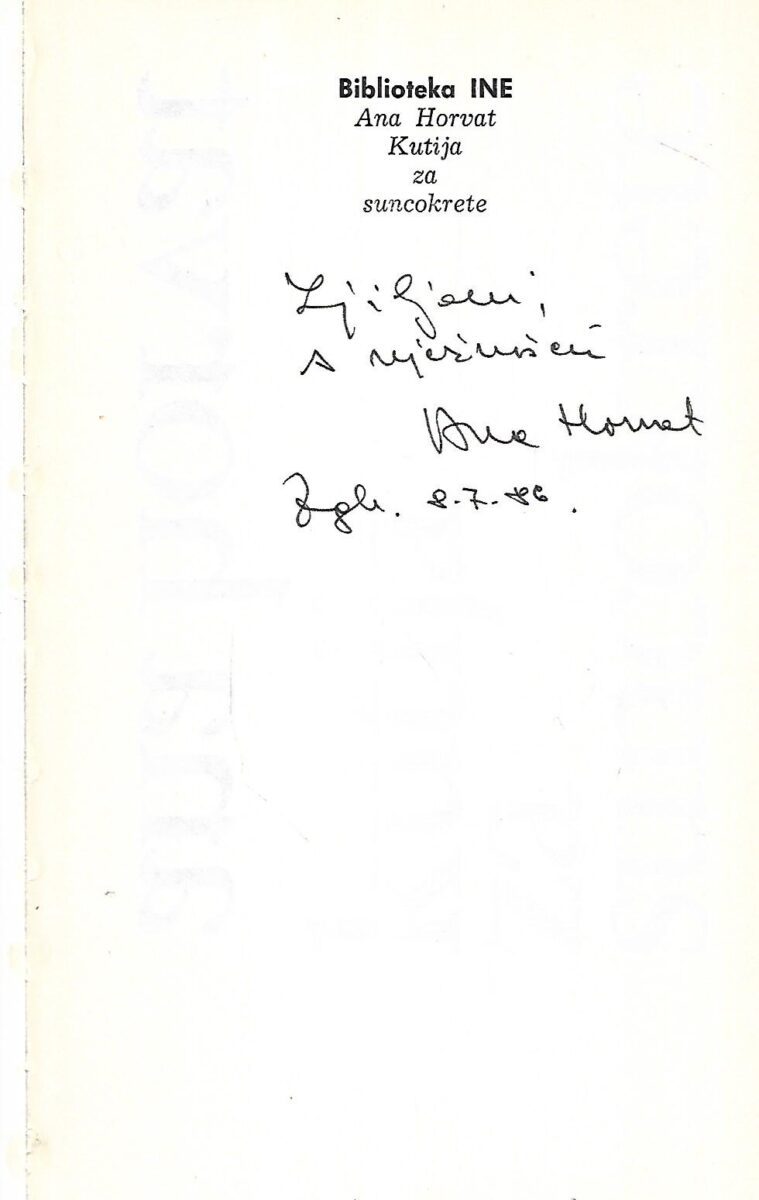 Biblioteka INE
Ana Horvat
Kutija
za
suncokrete
Ljiljani,
s nježnošću
Ana Horvat
Zgb. 8.7.86.